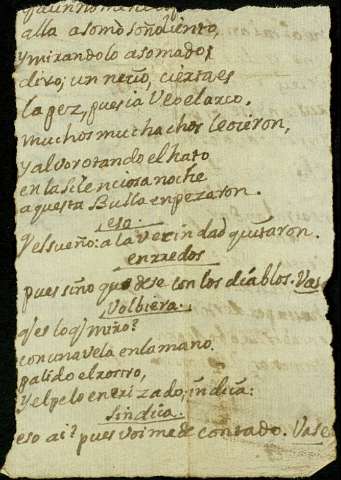 alla asomò soñoliento,
y mirandolo asomado,
dixo; un necio, cierta es
la pez, pues ia veo el arco.
muchos muchachos le oieron,
y alvorotando el hato
en la silenciosa noche
aquesta Bulla empezaron.
eso.
Y el sueño: a la vezindad quitaron.
enrredos
pues sino quedese con los diablos. Vas
Volbiera.
q̃ es lo q̃ miro?
con una vela en la mano.
palido el rostro,
y el pelo enrizado, indica:
Sindica.
eso ai? pues voime de contado. Vase